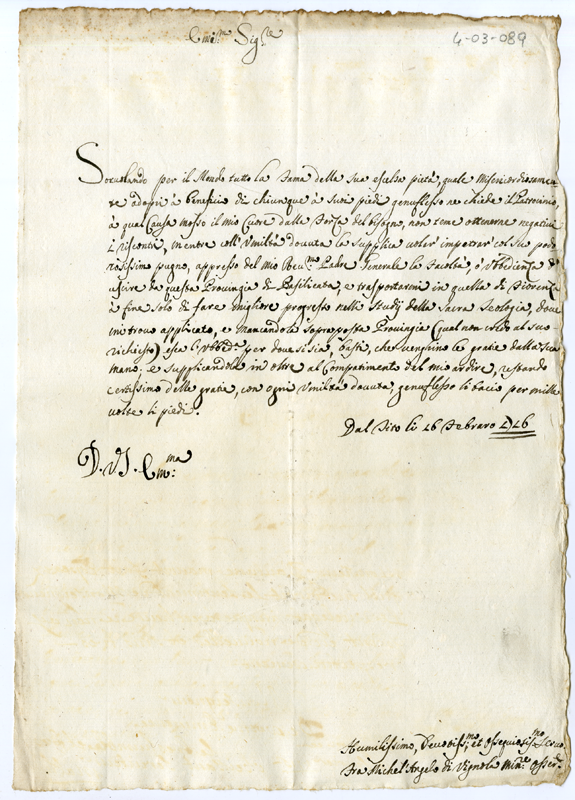 4-03-089
Em:mo Sig:re
Sorvolando per il Mondo tutto la fama della sua eccelsa pietà, quale Misericordiosamen
te adopri à beneficio di chiunque à Suoi piedi genuflesso ne chiede il Patrocinio,
à qual Causa mosso il mio Cuore dalla forza del bisogno, non teme ottenerne negativi
i risconti, mentre coll'Umiltà dovuta la Supplica voler' impetrar' col Suo pode
rosissimo pugno, appresso del mio Rev:mo Padre Generale la facoltà, ò Ubbidienza d'
uscire da questa Provingia di Basilicata, e trasportarmi in quella di Fiorenza
à fine solo di fare migliore progresso nelli Studij della Sacra Teologia, dove
mi trovo applicato, e Mancandole sopraposta Provingia (qual non credo al suo
richiesto) sea l'Ubbid:a per dove si sia, basti, che venghino le gratie dalla sua
mano. e supplicandola in oltre al Compatimento del mio ardire, restando
certissimo delle gratie, con ogni Umiltà dovuta, genuflesso li bacio per mille
volte li piedi.
Dal Tito li 26 Febraro 1726
D. V. E. Em:ma
Humilissimo, Devotiss:mo, et Ossequiosis:mo Servo
Fra Michel'Angelo di Vignola Min:re Osser:te